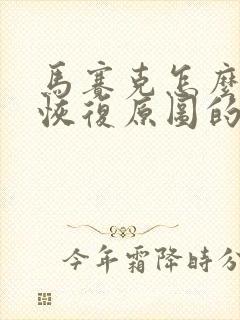 馬賽克怎麼
恢復原圖的
今年霜降時分